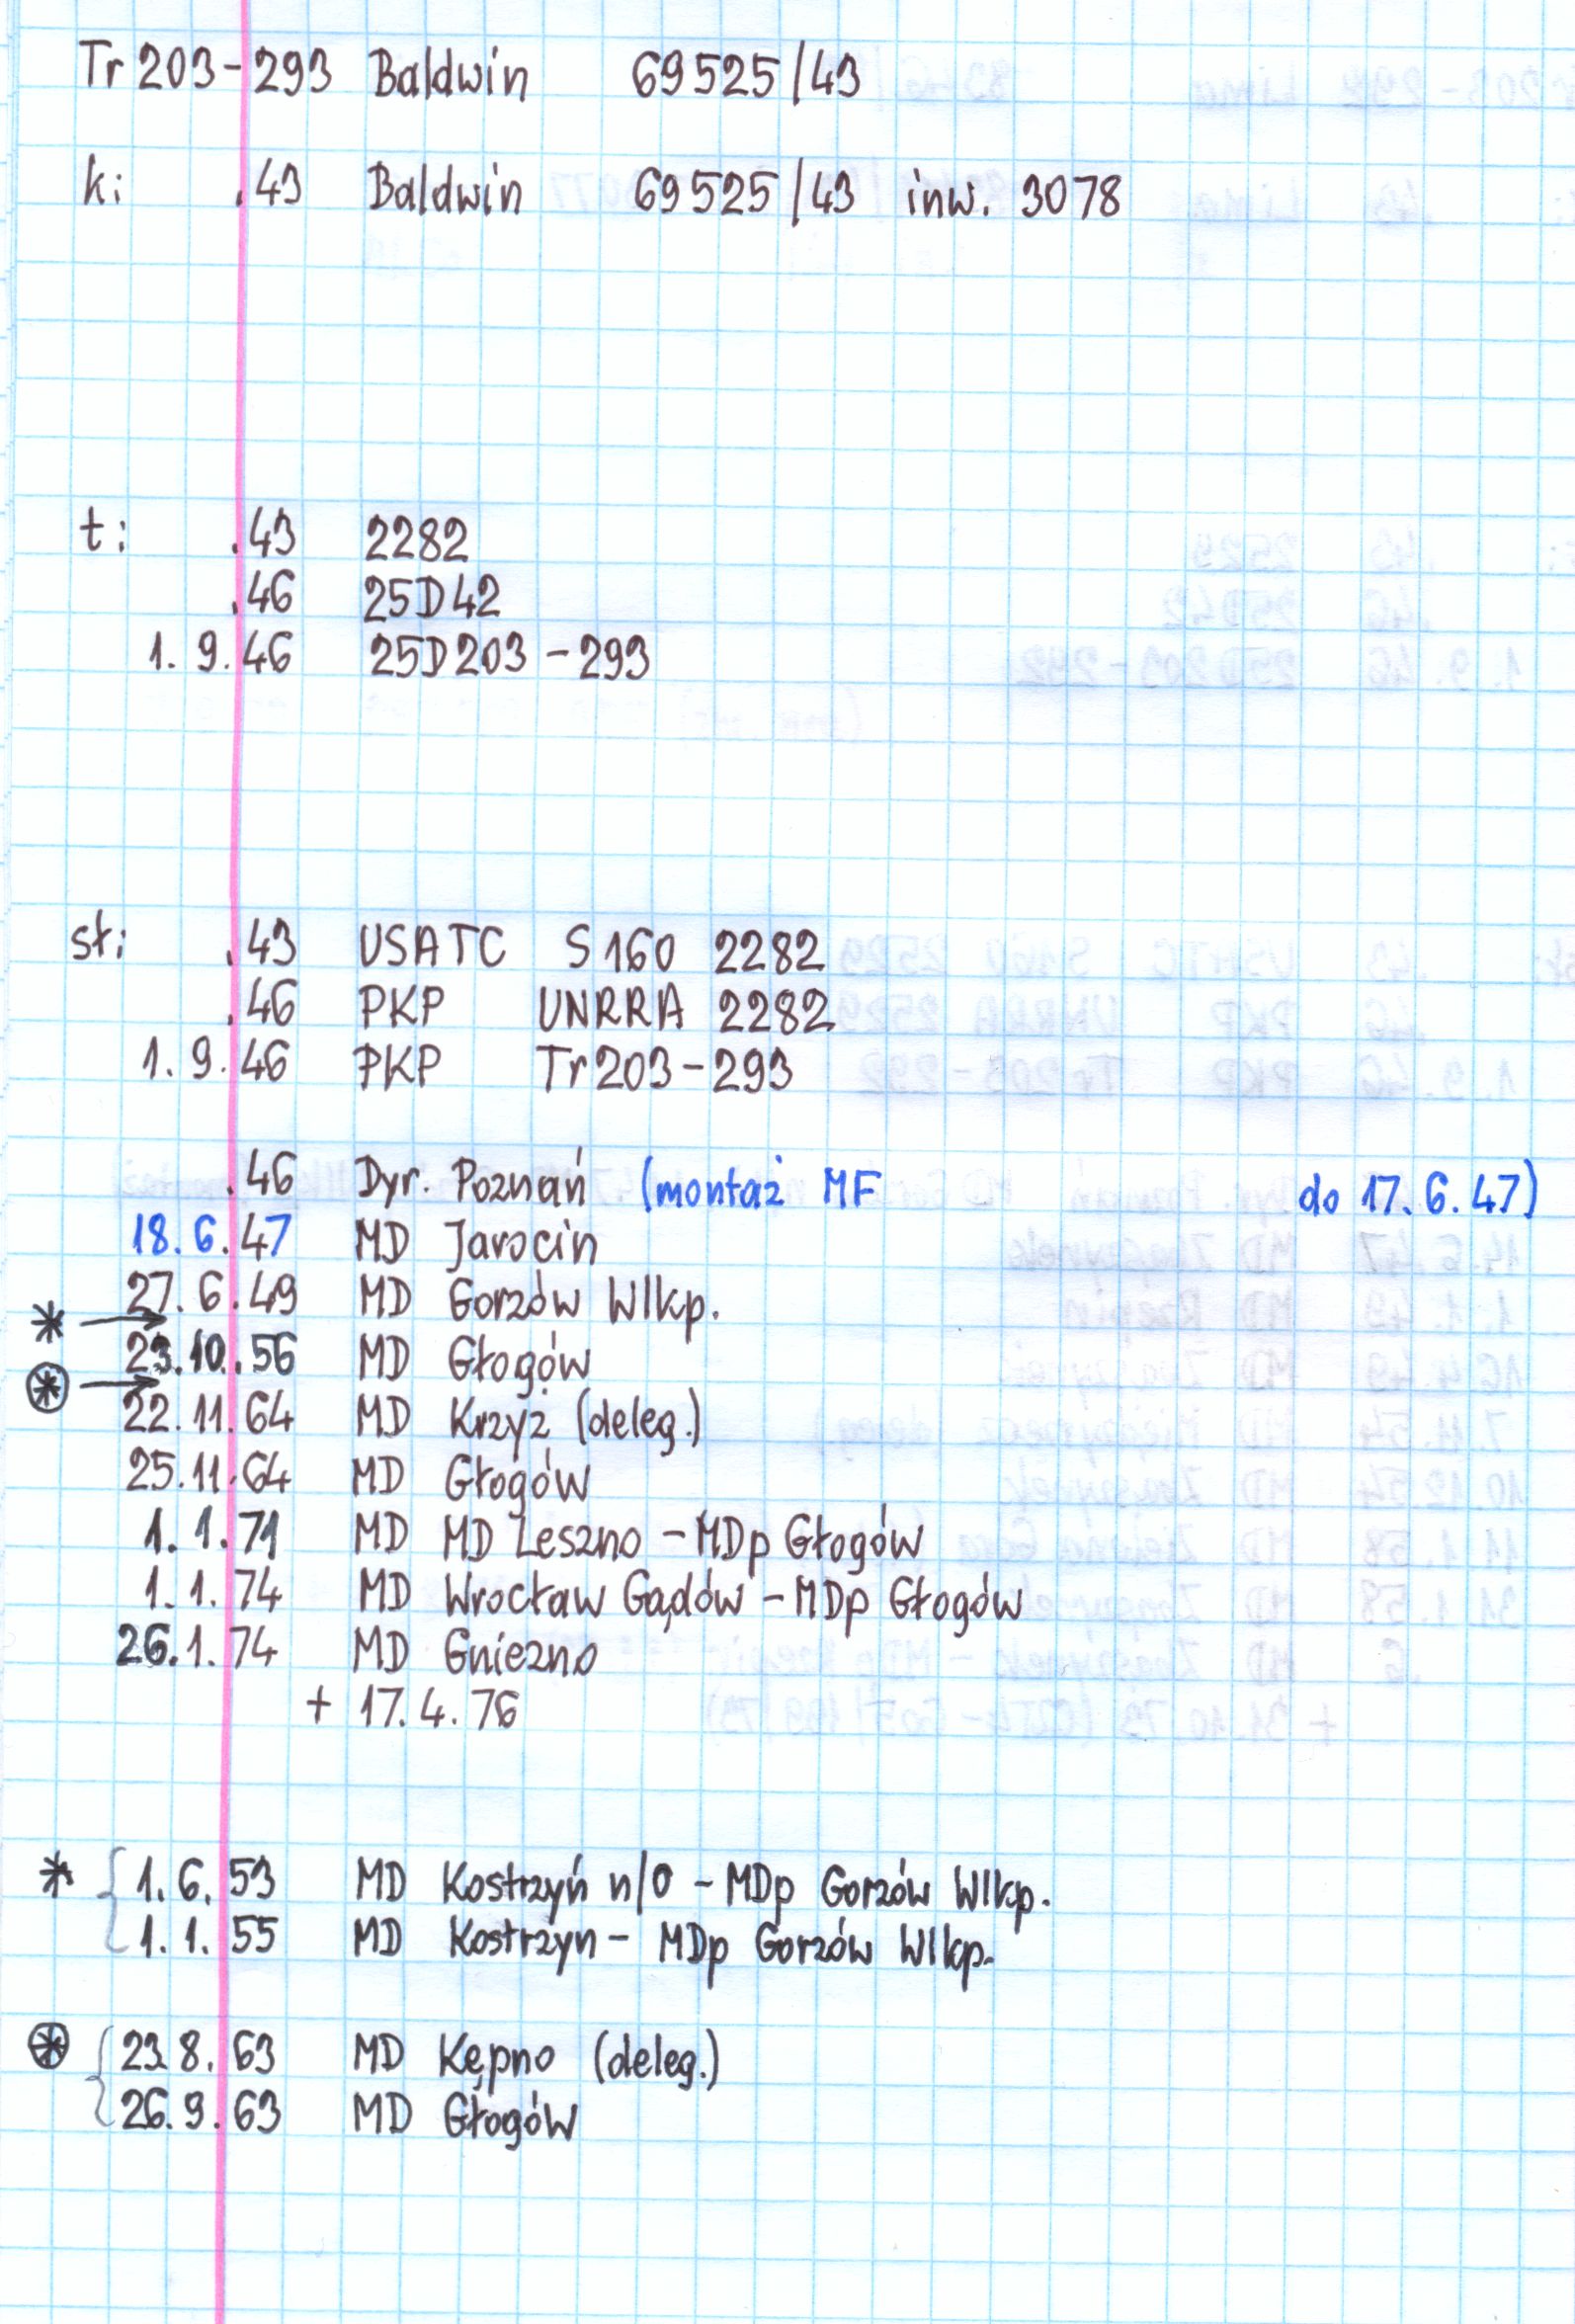 Tr 203-293 Baldwin 69525/43
k: .43 Baldwin 69525/43 inw. 3078
t: .43 2282
.46 25D42
1. 9. 46 25D203-293
sł: .43 USATC S160 2282
.46 PKP UNRRA 2282
1. 9. 46 PKP Tr203-293
.46 Dyr. Poznań (montaż MF do 17. 6. 47)
18. 6. 47 MD Jarocin
27. 6. 49 MD Gorzów Wlkp.
* →
23. 10. 56 MD Głogów
⊛ →
22. 11. 64 MD Krzyż (deleg.)
25. 11. 64 MD Głogów
1. 1. 71 MD MD Leszno - MDp Głogów
1. 1. 74 MD Wrocław Gądów - MDp Głogów
26. 1. 74 MD Gniezno
+ 17. 4. 76
* { 1. 6. 53 MD Kostrzyń n/O - MDp Gorzów Wlkp.
1. 1. 55 MD Kostrzyn - MDp Gorzów Wlkp.
⊛ { 23. 8. 63 MD Kępno (deleg.)
26. 9. 63 MD Głogów